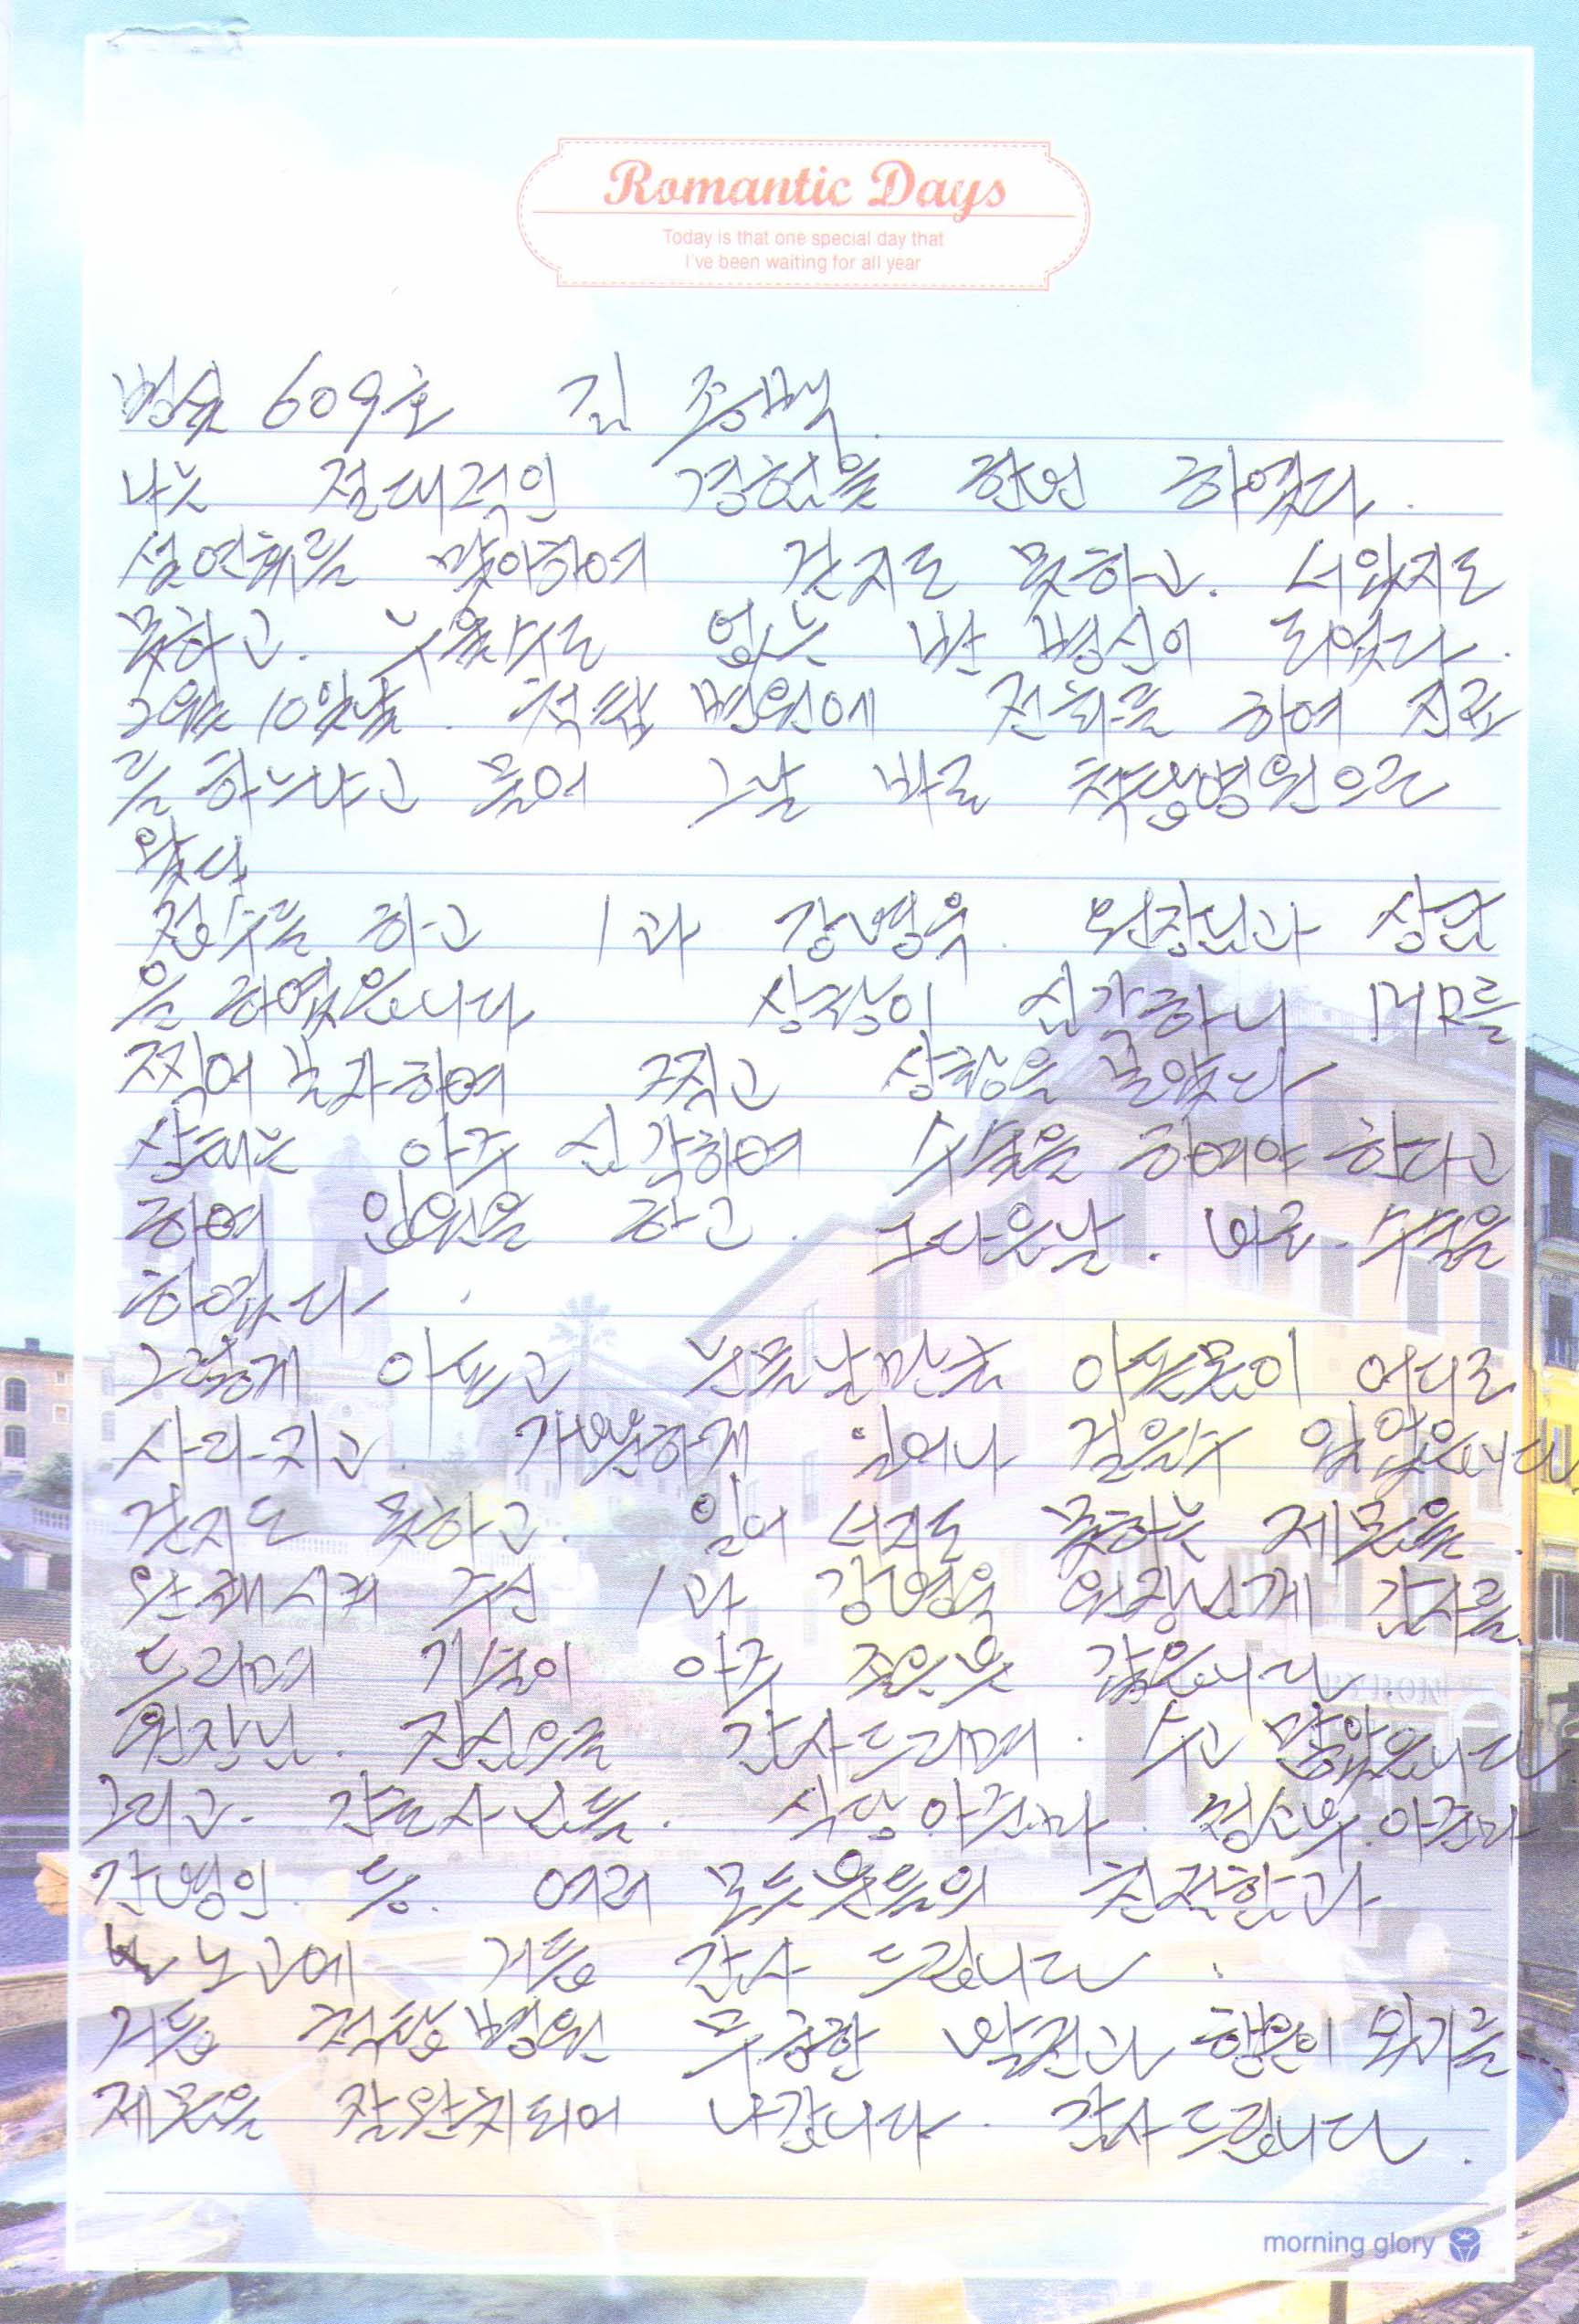 Romantic Days
Today is that one special day that
I've been waiting for all year
병실 609호 김종백
나는 절대적인 경험을 한번 하였다.
설연휴를 맞이하여 걷지도 못하고. 서있지도
못하고. 누울수도 없는 난 병신이 되었다.
2월 10일날. 척탑병원에 전화를 하여 진료
를 하느냐고 물어 그날 바로 척탑병원으로
왔다
접수를 하고 1과 강병욱. 원장님과 상담
을 하였읍니다 상황이 심각하니 MRI를
찍어 보자하여 찍고 상황을 보았다
상태는 아주 심각하여 수술을 하여야 한다고
하여 입원을 하고. 그다음날. 바로. 수술을
하였다.
그렇게 아프고 눈물날만큼 아픈몸이 어디로
사라지고. 가뿐하게 일어나 걸을수 있었읍니다
걷지도 못하고. 일어 서지도 못하는 제몸을.
완쾌시켜 주신 1과 강병욱 원장님께 감사를
드리며 기분이 아주 좋은것 같읍니다.
원장님. 진심으로 감사드리며. 수고 많았읍니다
그리고. 간호사님들. 식당아줌마. 청소부.아줌마
간병인. 등. 여러 모든분들의 친절함과
노고에 거듭 감사 드립니다.
거듭 척탑병원 무궁한 발전과 행운이 왔기를
제몸을 잘완치되어 나갑니다. 감사드립니다.
morning glory